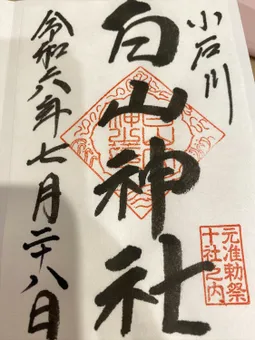 小石川
白山神社
元准勅祭
十社之内
令和六年七月二十八日